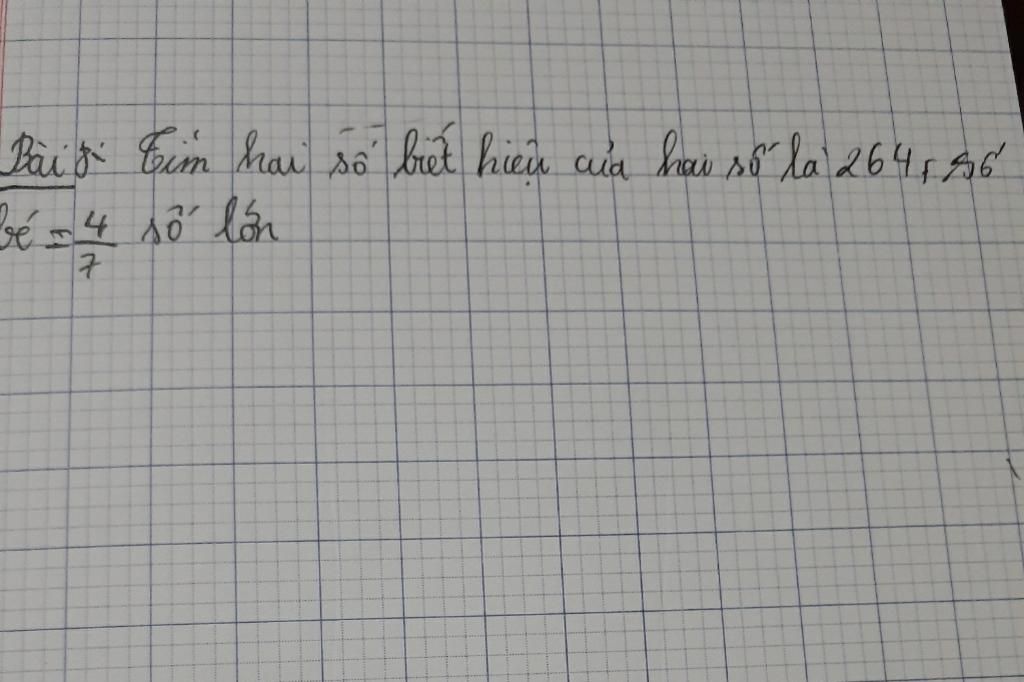 Bài 5: Tìm hai số biết hiệu của hai số là 264, số
bé = 4/7 số lớn